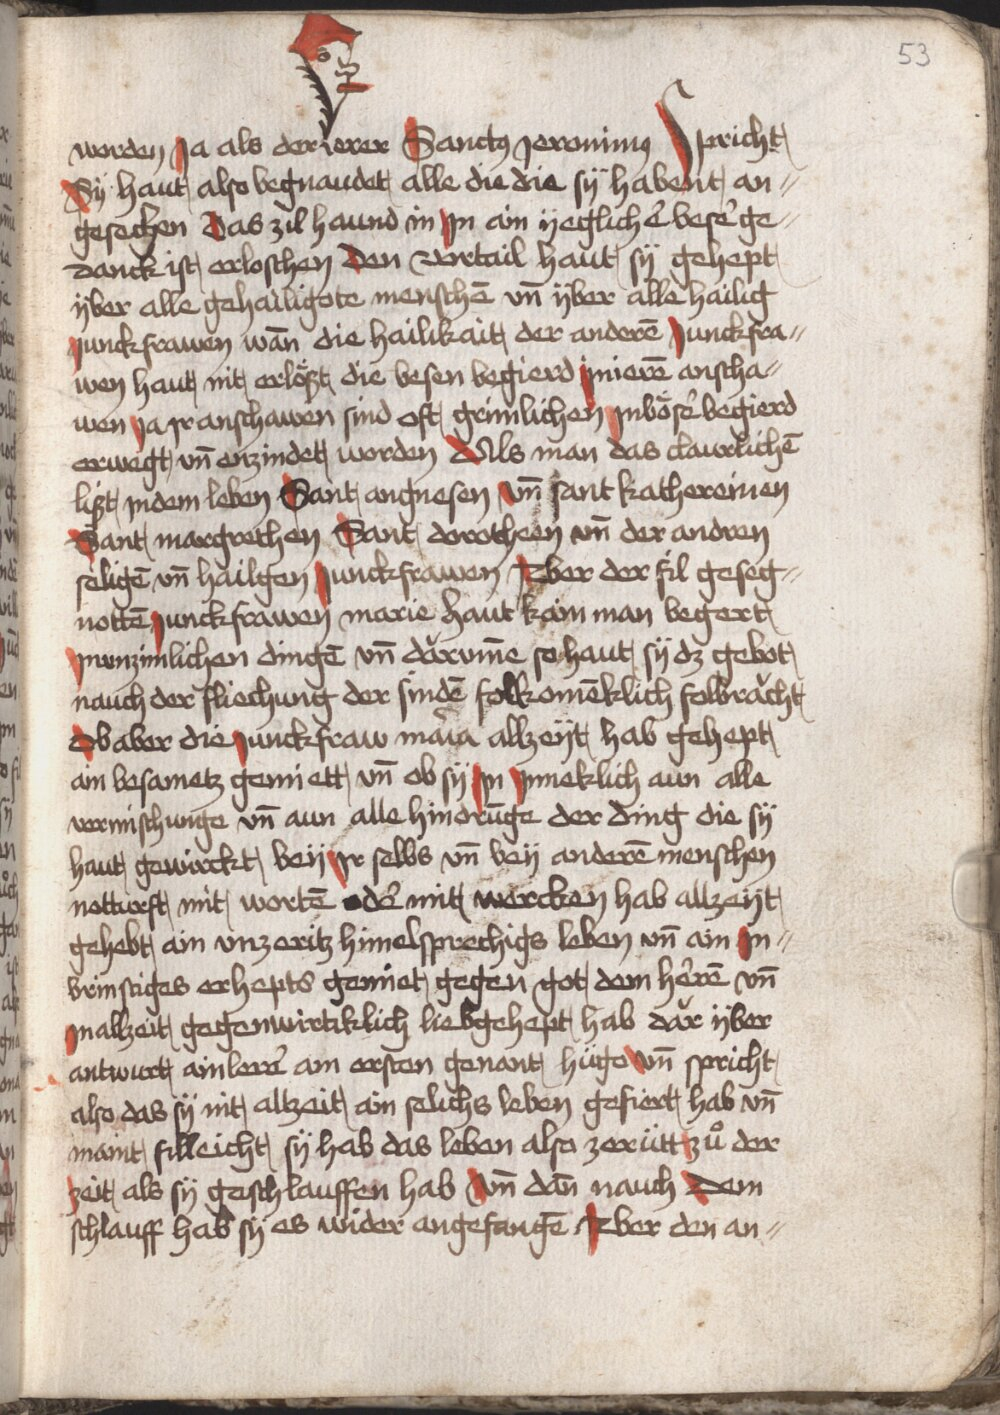 53
worden Ja als der lerer Sanctus Jeronimus Spricht
Sÿ haut also begnaudet alle die die sÿ habent an=
gesechen Das zil haund in Jn ain ÿeglicher beser ge=
danck ist erloschen Den vortail haut sÿ gehept
ÿber alle gehailigote menschē vn̄ ÿber alle hailig
Junckfrawen wan̄ die hailikait der anderē Junckfra=
wen haut nit erlößt die besen begierd Jn ierē anscha=
wen Ja Jr anschawen sind oft grimlichen Jn böser begierd
erwegt vn̄ enzindet worden Als man das claurlichē
lißt Jn dem leben Sant angnesen Vn̄ sant kathereinen
Sant margrethen Sant dorotheen vn̄ der andren
seligē vn̄ hailgen Junckfrawen Aber der fil geseg=
notten Junckfrawen marie haut kain man begert
Jn vnzimlichen dingē vn̄ darume so haut sÿ dz gebot
nauch der fliechung der sindē folkomēklich folbracht
Ob aber die Junckfraw maria allzeÿt hab gehept
ain besametz gemiett vn̄ ob sÿ Jn Jnneklich aun alle
vermischunge vn̄ aun alle hindrūge der ding die sÿ
haut gewirckt beÿ Jr selbs vn̄ beÿ anderē menschen
notturft mit wortē oder mit wercken hab allzeÿt
gehebt ain vnzeritz himelsprechigs leben vn̄ ain Jn=
brinstiges erhepts gemiet gegen got dem herē vn̄
Jn allzeit gegenwirtiklich lieb gehept hab dar ÿber
antwurt ain lerer am ersten genant hŭgo Vn̄ spricht
also das sÿ nit altzeit ain selichs leben gefiert hab vn̄
maint filleicht sÿ hab das leben also zerütt zů der
zeit als sÿ geschlauffen hab Vn̄ dan̄ nauch Dem
schlauff hab sÿ es wider angefangē Aber den an=